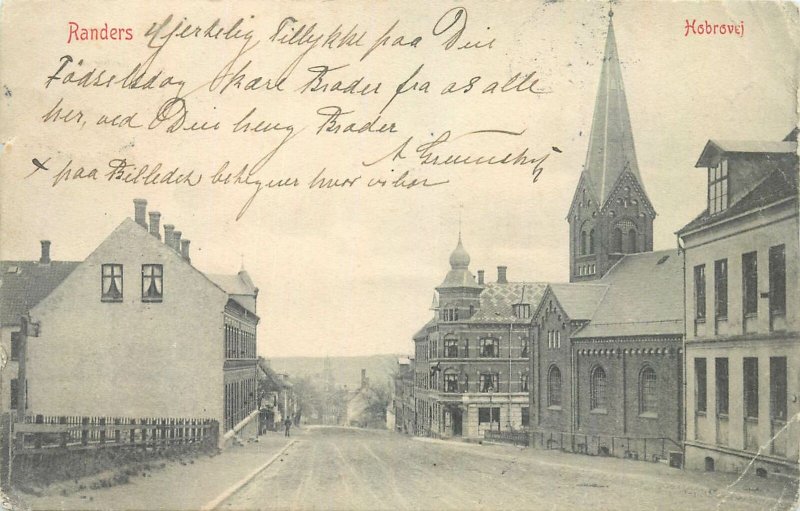 Randers
Hobrovej
Hjertelig Tillykke paa Din
Födselsdag kære Broder fra os alle
her, ved Din heng Broder
A
x paa Billedet betegner hvor vi bor